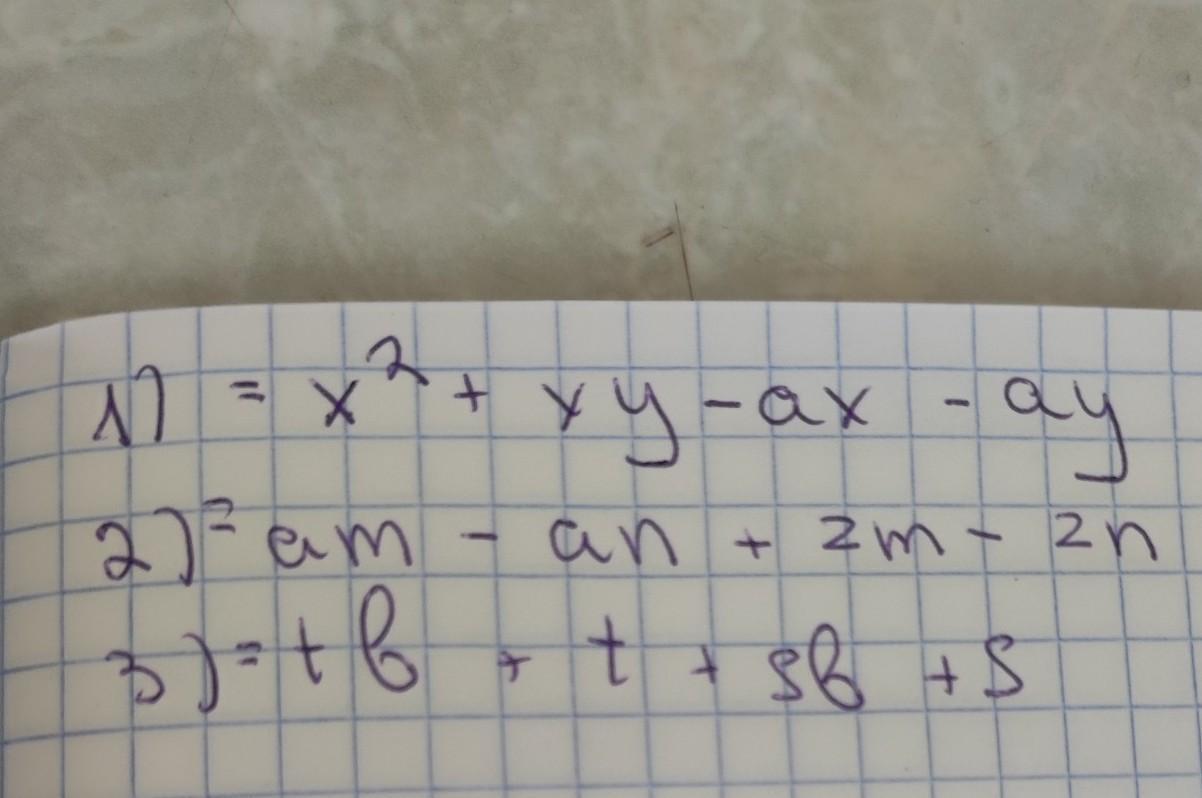 1) = x² + xy - ax - ay
2) = am - an + 2m - 2n
3) = tb + t + sb + s